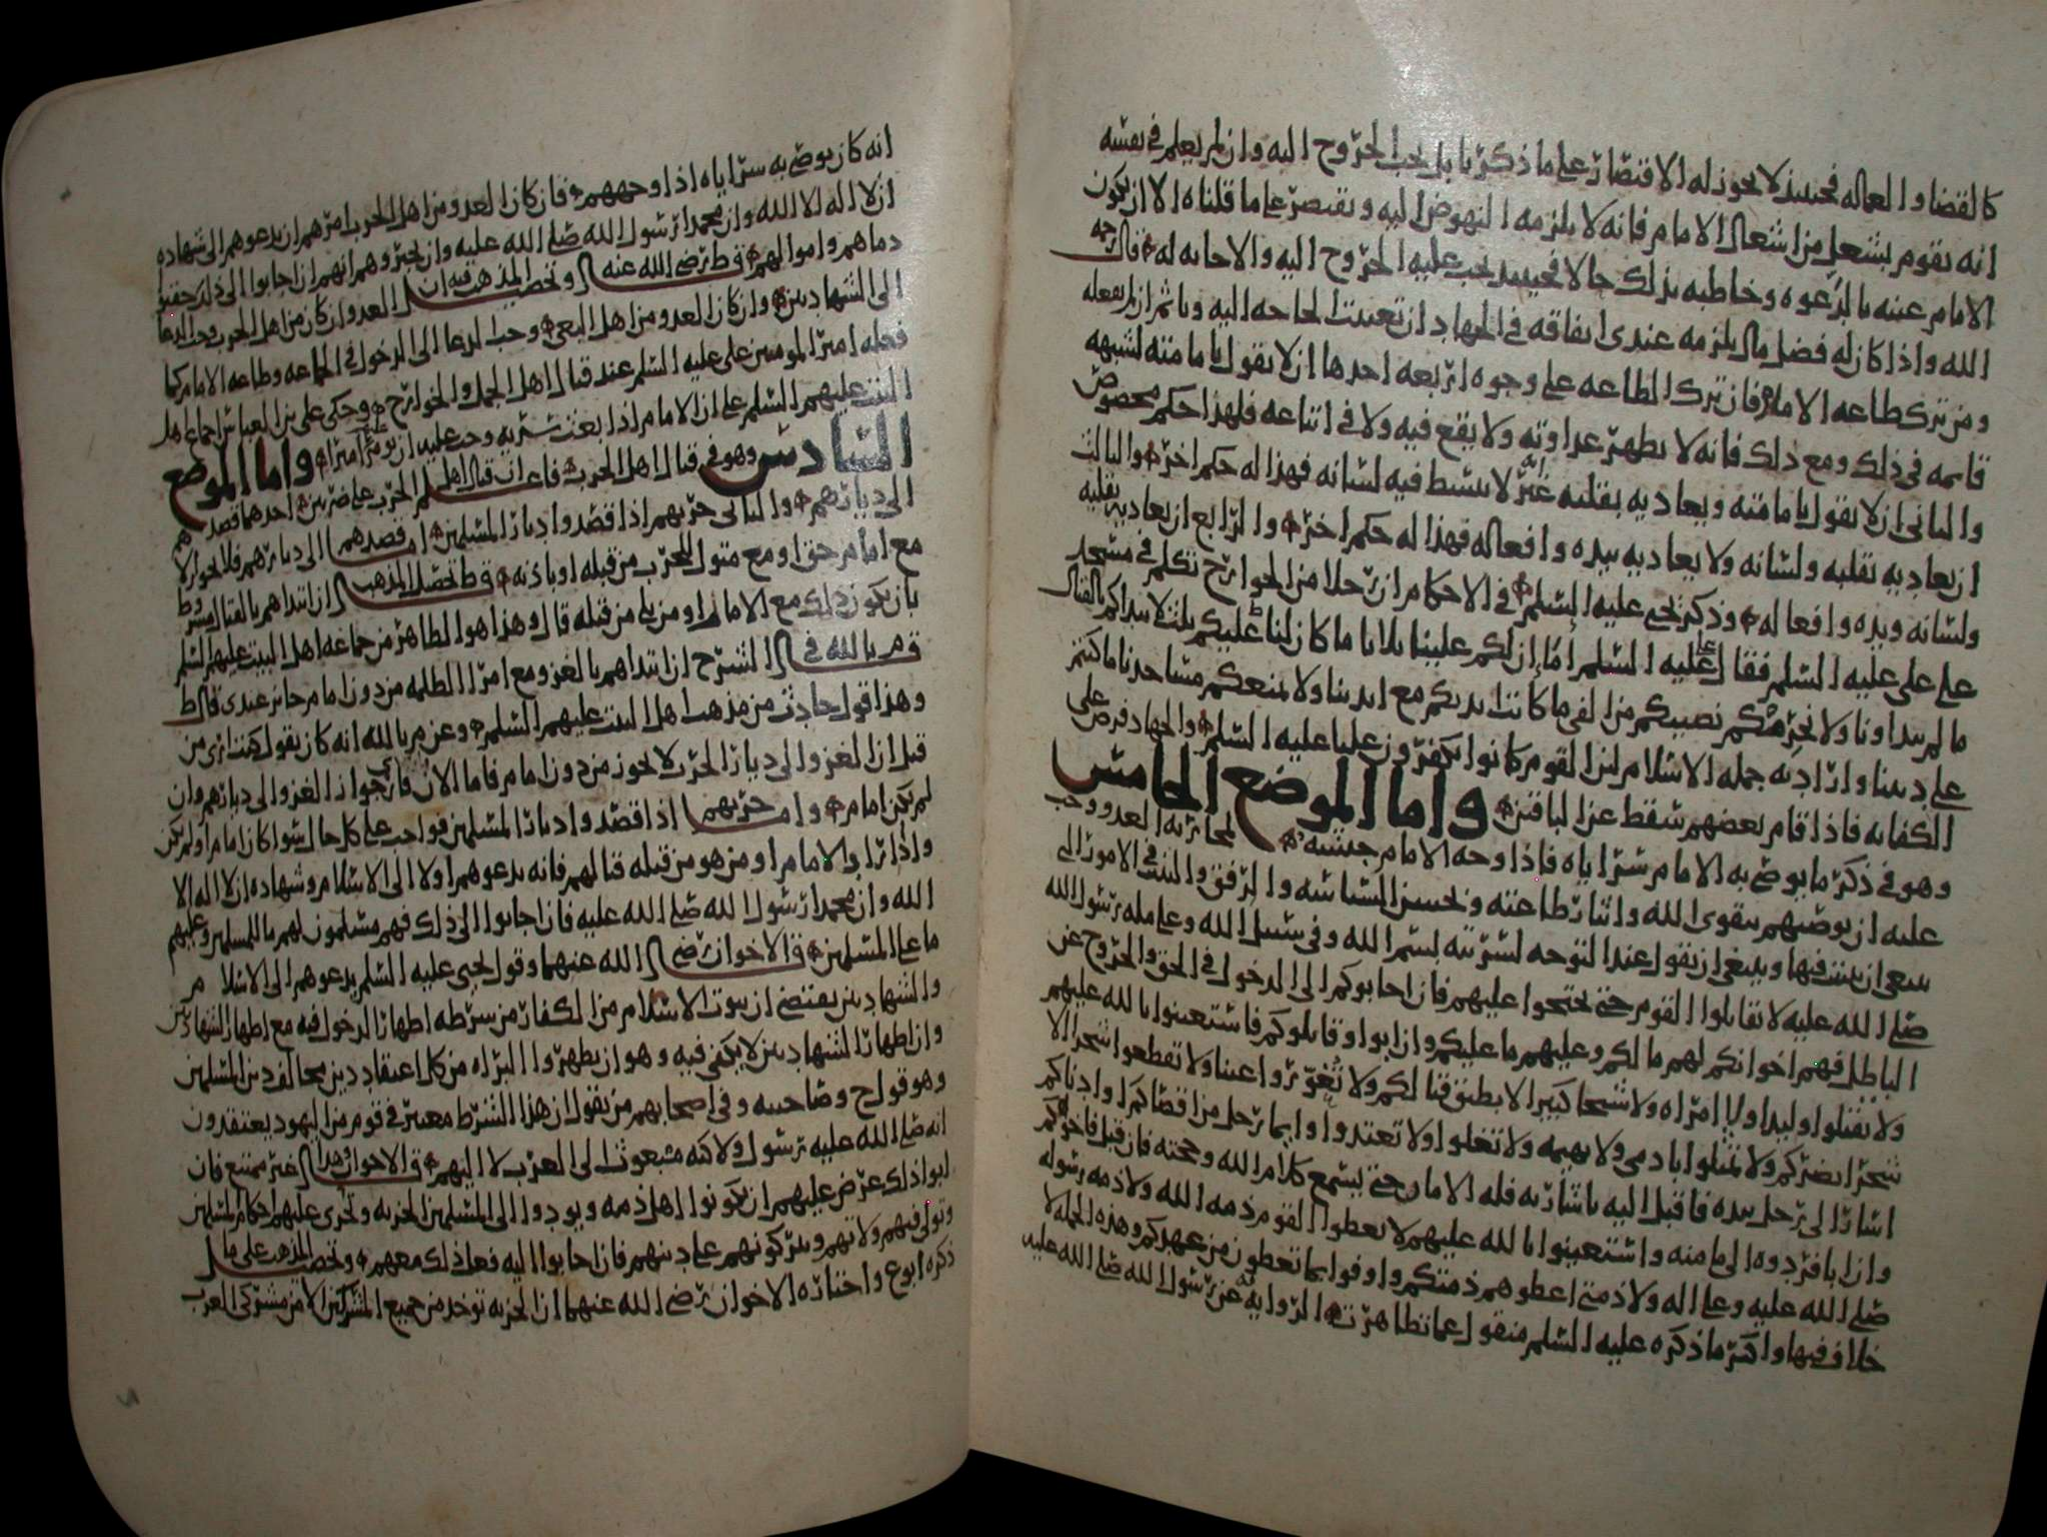 كالقضا والعماله فحينئذ لا يجوز له الاقتصار على ما ذكرنا بل يجب الخروج اليه وان لم يعلم في نفسه
انه يقوم بشغل من اشغال الامام فانه لا يلزمه النهوض اليه ويقتصر على ما قلناه الا ان يكون
الامام عينه بالدعوه وخاطبه بذلك حالا فحينئذ يجب عليه الخروج اليه والاجابه له قال رحمه
الله واذا كان له فضل مال يلزمه عندي انفاقه في الجهاد ان تعينت الحاجه اليه وياثم ان لم يفعله
ومن ترك طاعه الامام فان ترك الطاعه على وجوه اربعه احدها ان لا يقول بامامته لشبهه
قائمه في ذلك ومع ذلك فانه لا يظهر عداوته ولا يقع فيه ولا في اتباعه فلهذا حكم مخصوص
والثاني ان لا يقول بامامته ويعاديه بقلبه غير انه لا يبسط فيه لسانه فهذا له حكم اخر والثالث
ان يعاديه بقلبه ولسانه ولا يعاديه بيده وافعاله فهذا له حكم اخر والرابع ان يعاديه بقلبه
ولسانه ويده وافعاله وذكر يحيى عليه السلم في الاحكام ان رجلا من الخوارج تكلم في مسجد
على علي عليه السلم فقال علي عليه السلم اما ان لكم علينا ثلاثا ما كان لنا عليكم ثلث لا نبداكم بالقتال
ما لم تبداونا ولا نحرمكم نصيبكم من الفي ما كانت ايديكم مع ايدينا ولا نمنعكم مساجدنا ما كنتم
على ديننا واراد به جمله الاسلام لان القوم كانوا يكفرون عليا عليه السلم والجهاد فرض على
الكفايه فاذا قام بعضهم سقط عن الباقين واما الموضع الخامس
وهو في ذكر ما يوصي به الامام سراياه فاذا وجه الامام جيشه لمحاربه العدو وجب
عليه ان يوصيهم بتقوى الله وايثار طاعته وبحسن السياسه والرفق والتثبت في الامور التي
ينبغي ان يتثبت فيها وينبغي ان يقول عند التوجه لسريته بسم الله وفي سبيل الله وعلى مله رسول الله
صلى الله عليه لا تقاتلوا القوم حتى تحتجوا عليهم فان اجابوكم الى الدخول في الحق والخروج عن
الباطل فهم اخوانكم لهم ما لكم وعليهم ما عليكم وان ابوا وقاتلوكم فاستعينوا بالله عليهم
ولا تقتلوا وليدا ولا امراه ولا شيخا كبيرا لا يطيق قتالكم ولا تغوروا عينا ولا تقطعوا شجرا الا
شجرا يضركم ولا تمثلوا بادمي ولا بهيمه ولا تغلوا ولا تعتدوا وايما رجل من اقصاكم او ادناكم
اشار الى رجل بيده فاقبل اليه باشارته فله الامان حتى يسمع كلام الله وحجته فان قبل فاخوكم
وان ابا فردوه الى مامنه واستعينوا بالله عليهم لا تعطوا القوم ذمه الله ولا ذمه رسوله
صلى الله عليه وعلى اله ولا ذمتي اعطوهم ذمتكم واوفوا بما تعطون من عهدكم وهذه الجمله لا
خلاف فيها واكثر ما ذكره عليه السلم منقول عما تظاهرت به الروايه عن رسول الله صلى الله عليه
انه كان يوصي به سراياه اذا وجههم فان كان العدو من اهل الحرب امرهم ان يدعوهم الى شهاده
ان لا اله الا الله وان محمدا رسول الله صلى الله عليه وان يخبروهم انهم ان اجابوا الى ذلك حقنوا
دماهم واموالهم قال ط رضي الله عنه وتحصيل المذهب فيه ان العدو ان كان من اهل الحرب وجب الدعا
الى الشهادتين وان كان العدو من اهل البغي وجب الدعا الى الدخول في الجماعه وطاعه الامام كما
فعله امير المومنين علي عليه السلم عند قتال اهل الجمل والخوارج وحكى علي بن العباس اجماع اهل
البيت عليهم السلم على ان الامام اذا بعث سريه وجب عليه ان يومر اميرا واما الموضع
السادس وهو في قتال اهل الحرب فاعلم ان قتال اهل الحرب على ضربين احدهما قصدهم
الى ديارهم والثاني حربهم اذا قصدوا ديار المسلمين اما قصدهم الى ديارهم فلا يجوز الا
مع امام حق او مع متول للحرب من قبله او باذنه قال ط تحصيل المذهب ان ابتداهم بالقتال مشروط
بان يكون ذلك مع الامام او من يلي من قبله قال وهذا هو الظاهر من جماعه اهل البيت عليهم السلم
قال م بالله في الشرح ان ابتداهم بالغزو مع امرا الظلمه من دون امام جائز عندي قال ط
وهذا قول حادث من مذهب اهل البيت عليهم السلم وعن م بالله انه كان يقول كنت ارى من
قبل ان الغزو الى ديار الحرب لا يجوز من دون امام فاما الان فارى جواز الغزو الى ديارهم وان
لم يكن امام واما حربهم اذا قصدوا ديار المسلمين فواجب على كل حال سوا كان امام او لم يكن
واذا راى الامام او من هو من قبله قتالهم فانه يدعوهم اولا الى الاسلام وشهاده ان لا اله الا
الله وان محمدا رسول الله صلى الله عليه فان اجابوا الى ذلك فهم مسلمون لهم ما للمسلمين وعليهم
ما على المسلمين قال الاخوان رضي الله عنهما وقول يحيى عليه السلم يدعوهم الى الاسلام
والشهادتين يقتضي ان ثبوت الاسلام من الكفار من شرطه اظهار الدخول فيه مع اظهار الشهادتين
وان اظهار الشهادتين لا يكفي فيه وهو ان يظهروا البراه من كل اعتقاد دين يخالف دين المسلمين
وهو قول ح وصاحبيه وفي اصحابهم من يقول ان هذا الشرط معتبر في قوم من اليهود يعتقدون
انه صلى الله عليه رسول ولاكنه مبعوث الى العرب لا اليهم قال الاخوان وهذا غير ممتنع فان
ابوا ذلك عرض عليهم ان يكونوا اهل ذمه ويودوا الى المسلمين الجزيه وتجري عليهم احكام المسلمين
وتولى فيهم ولاتهم ويتركونهم على دينهم فان اجابوا اليه فعل ذلك معهم وتحصيل المذهب على ما
ذكره ابوع واختاره الاخوان رضي الله عنهما ان الجزيه توخذ من جميع المشركين الا من مشركي العرب